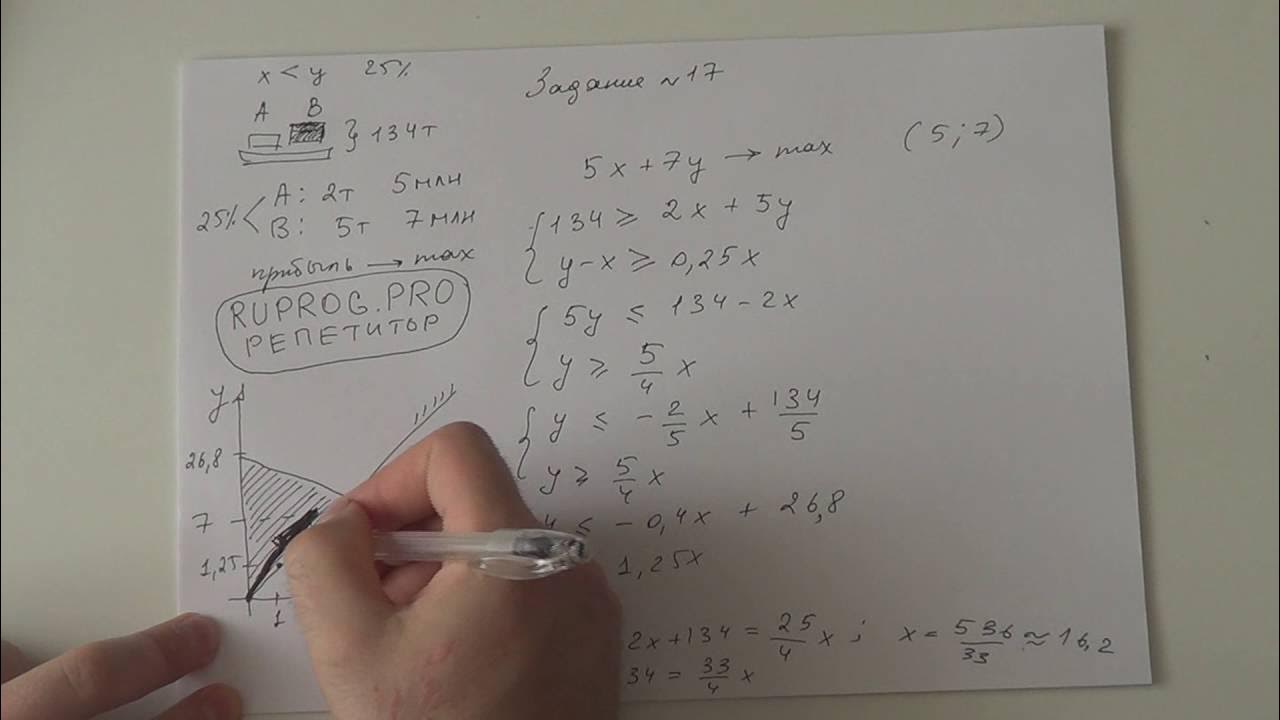 x < y 25%
A B
} 134т
25% < A: 2т 5 млн
B: 5т 7 млн
прибыль → max
RUPROG.PRO
РЕПЕТИТОР
y
26,8
7
1,25
1
Задание №17
5x + 7y → max (5;7)
134 ≥ 2x + 5y
y - x ≥ 0,25x
5y ≤ 134 - 2x
y ≥ 5/4 x
y ≤ - 2/5 x + 134/5
y ≥ 5/4 x
y ≤ - 0,4x + 26,8
1,25x
2x + 134 = 25/4 x ; x = 536/33 ≈ 16,2
34 = 33/4 x